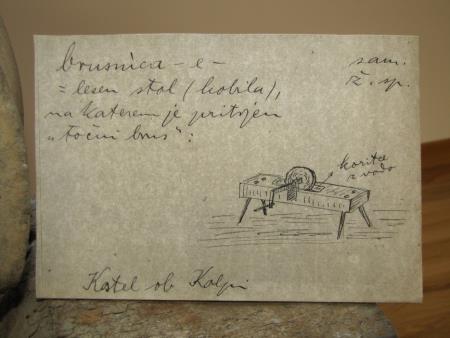 brusnica -e- sam.
ž. sp.
= lesen stol (kobila),
na katerem je pritrjen
"točni brus":
korito
z vodo
Kostel ob Kolpi